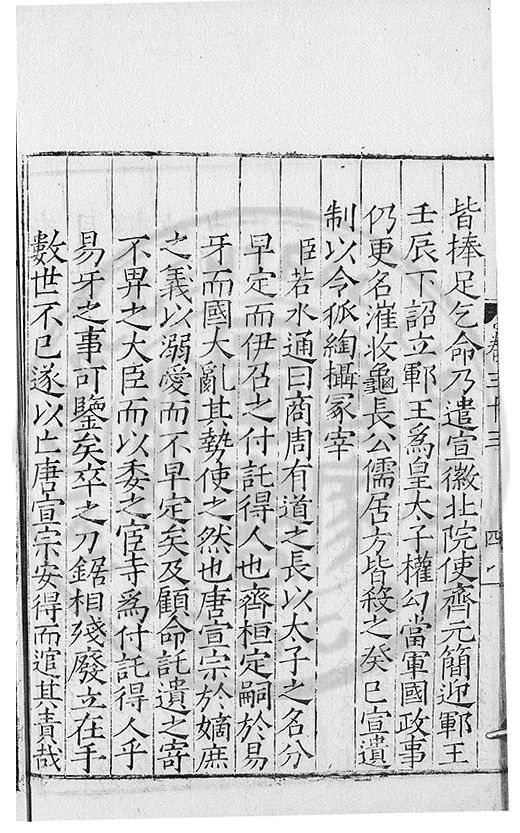 皆捧足乞命乃遣宣徽北院使齊元簡迎鄆王
壬辰下詔立鄆王爲皇太子權勾當軍國政事
仍更名漼收龜長公儒居方皆殺之癸巳宣遺
制以令狐綯攝冢宰
臣若水通曰商周有道之長以太子之名分
早定而伊召之付託得人也齊桓定嗣於易
牙而國大亂其勢使之然也唐宣宗於嫡庶
之義以溺愛而不早定矣及顧命託遺之寄
不畀之大臣而以委之宦寺爲付託得人乎
易牙之事可鑒矣卒之刀鋸相殘廢立在手
數世不已遂以亡唐宣宗安得而逭其責哉
卷三十三
四